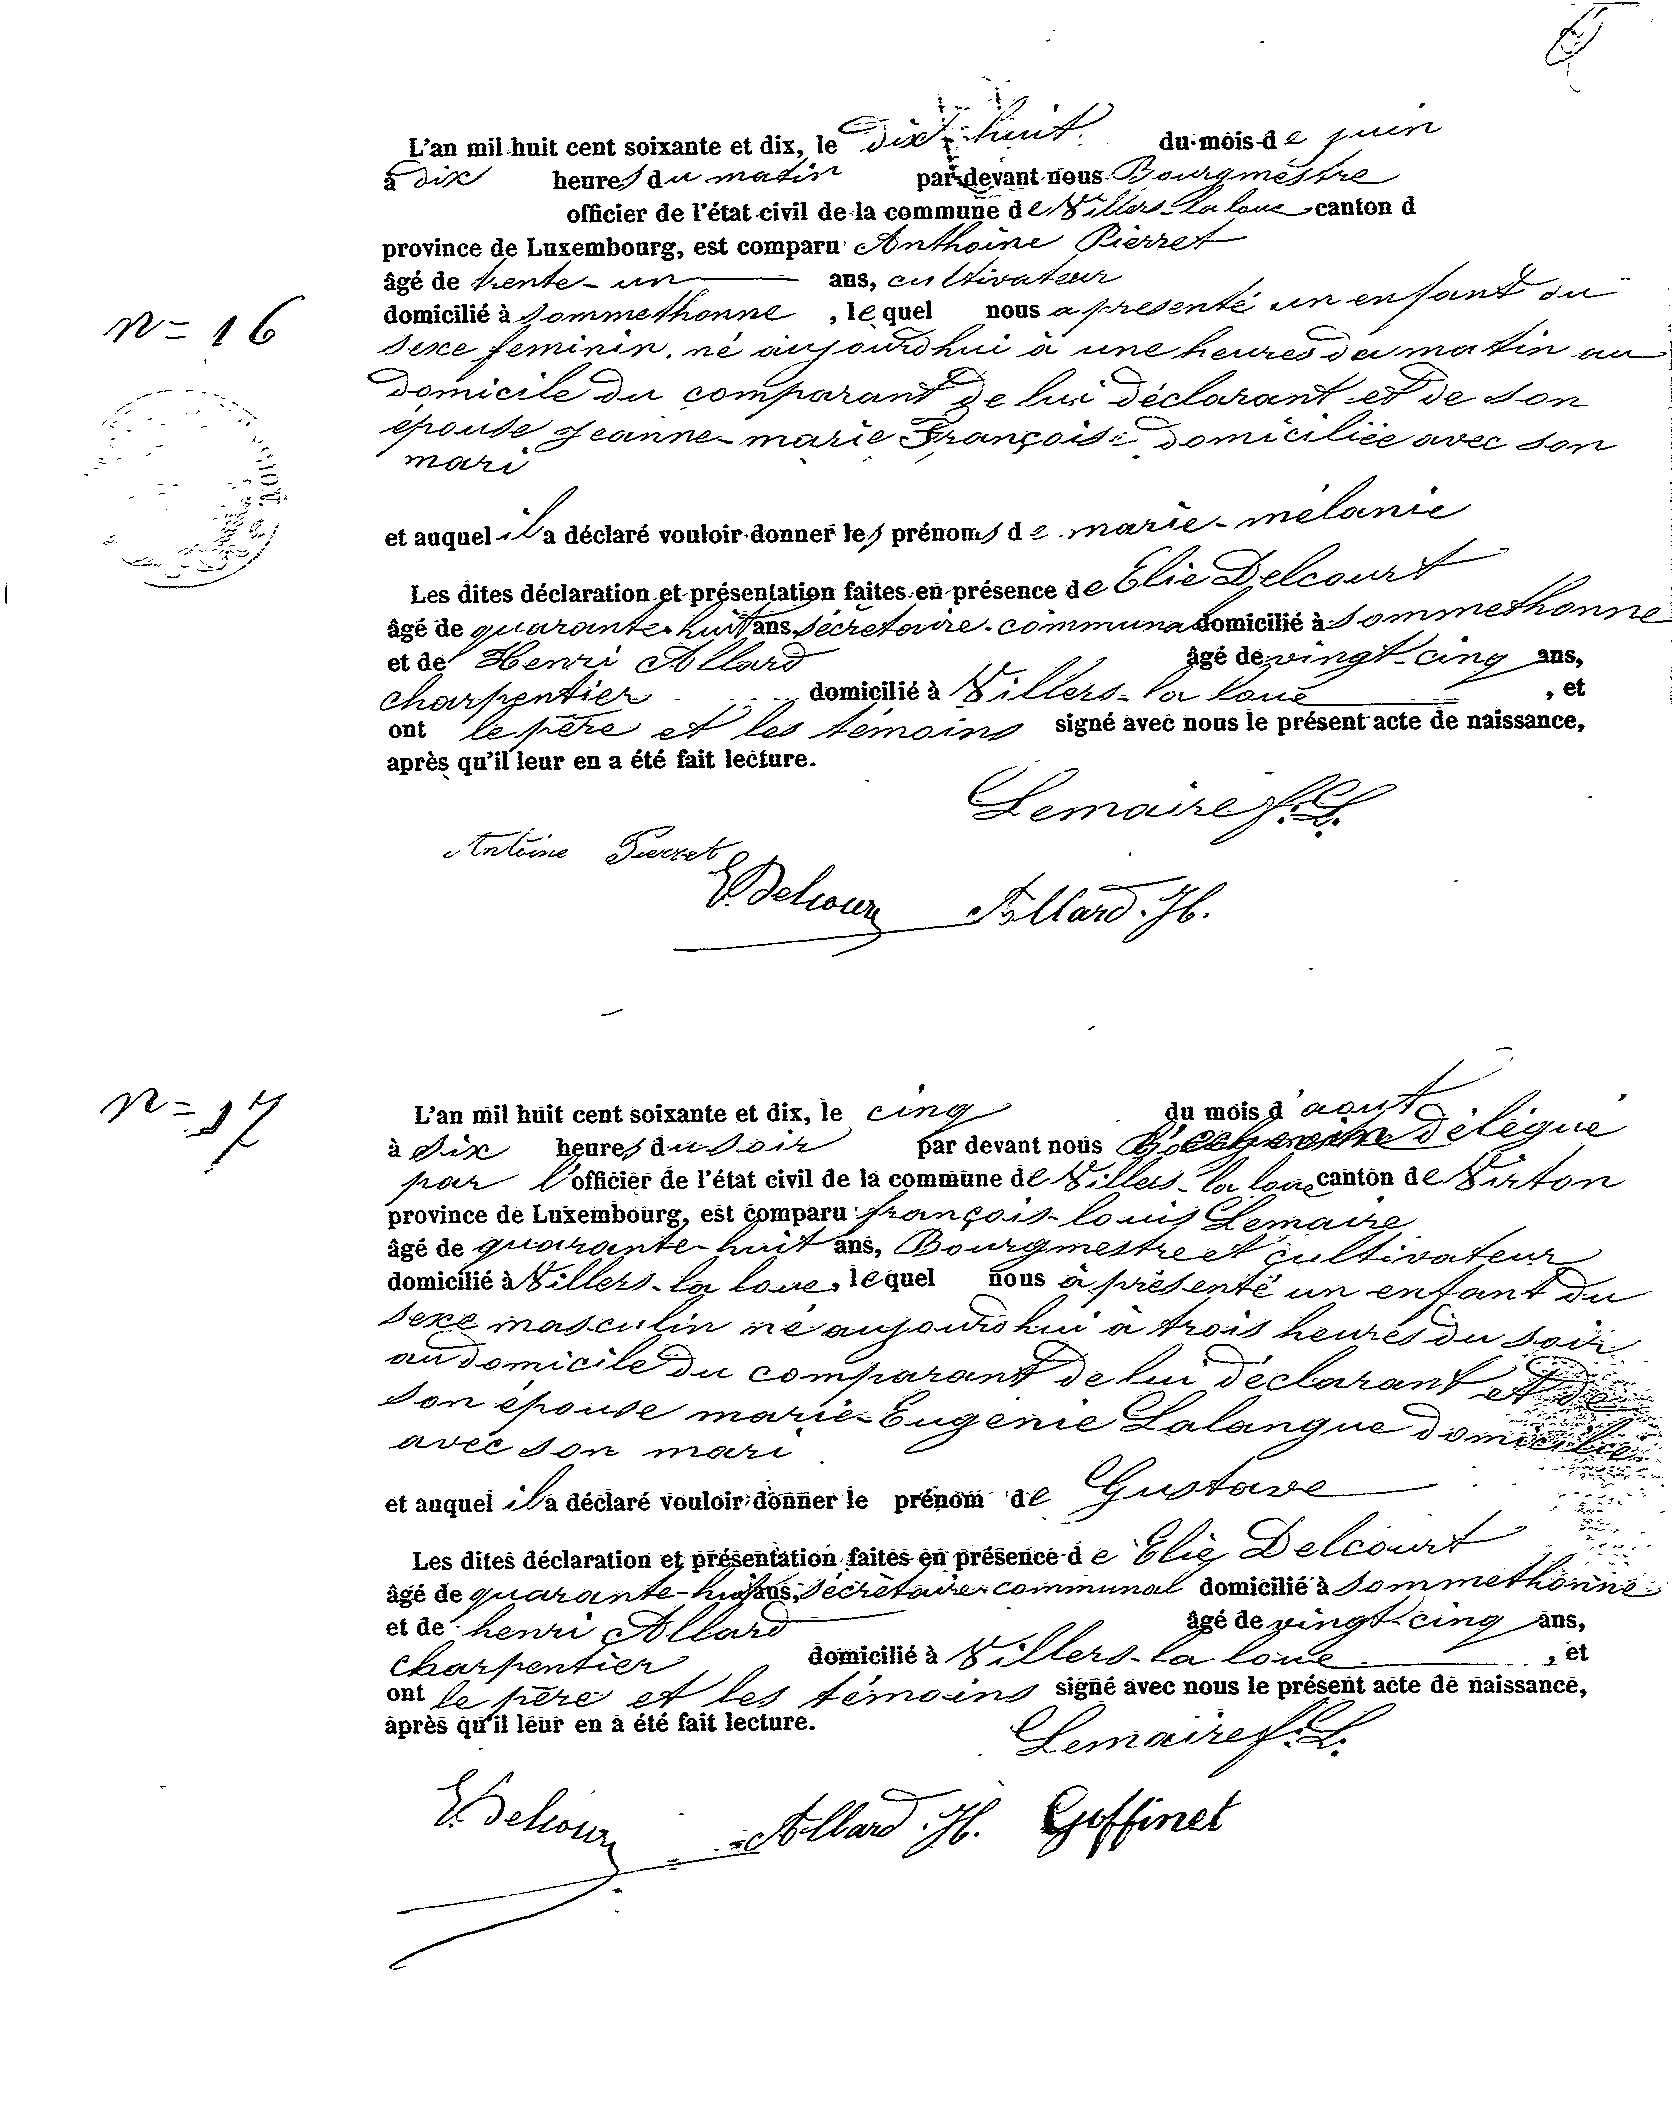 L'an mil huit cent soixante et dix, le dix-huit du mois de juin
à dix heures du matin par devant nous Bourgmèstre
officier de l'état civil de la commune de Villers-la loue canton d
province de Luxembourg, est comparu Anthoine Pierret
âgé de trente-un ans, cultivateur
n= 16
domicilié à Sommethonne, lequel nous a présenté un enfant du
sexe feminin né aujourd'hui à une heures du matin au
domicile du comparant de lui déclarant et de son
épouse Jeanne-marie François domiciliée avec son
mari
et auquel il a déclaré vouloir donner les prénoms de marie-mélanie
Les dites déclaration et présentation faites en présence de Elie Delcourt
âgé de quarante-huit ans, sécrétaire-communal domicilié à Sommethonne
et de Henri Allard âgé de vingt-cinq ans,
charpentier domicilié à Villers-la loue, et
ont le père et les témoins signé avec nous le présent acte de naissance,
après qu'il leur en a été fait lecture.
Lemaire f. L.
Antoine Pierret
E. Delcour Allard. H.
n= 17
L'an mil huit cent soixante et dix, le cinq du mois d'aout
à six heures du soir par devant nous délégué
par l'officier de l'état civil de la commune de Villers-la loue canton de Virton
province de Luxembourg, est comparu françois-louis Lemaire
âgé de quarante-huit ans, Bourgmestre et cultivateur
domicilié à Villers-la loue, lequel nous à présenté un enfant du
sexe masculin né aujourd'hui à trois heures du soir
au domicile du comparant de lui déclarant et de
son épouse marie-Eugénie Lalangue domiciliée
avec son mari
et auquel il a déclaré vouloir donner le prénom de Gustave
Les dites déclaration et présentation faites en présence de Elie Delcourt
âgé de quarante-huit ans, sécrètaire-communal domicilié à Sommethonne
et de henri Allard âgé de vingt-cinq ans,
charpentier domicilié à Villers-la loue, et
ont le père et les témoins signé avec nous le présent acte de naissance,
après qu'il leur en a été fait lecture.
Lemaire f. L.
E. Delcour Allard. H. Goffinet